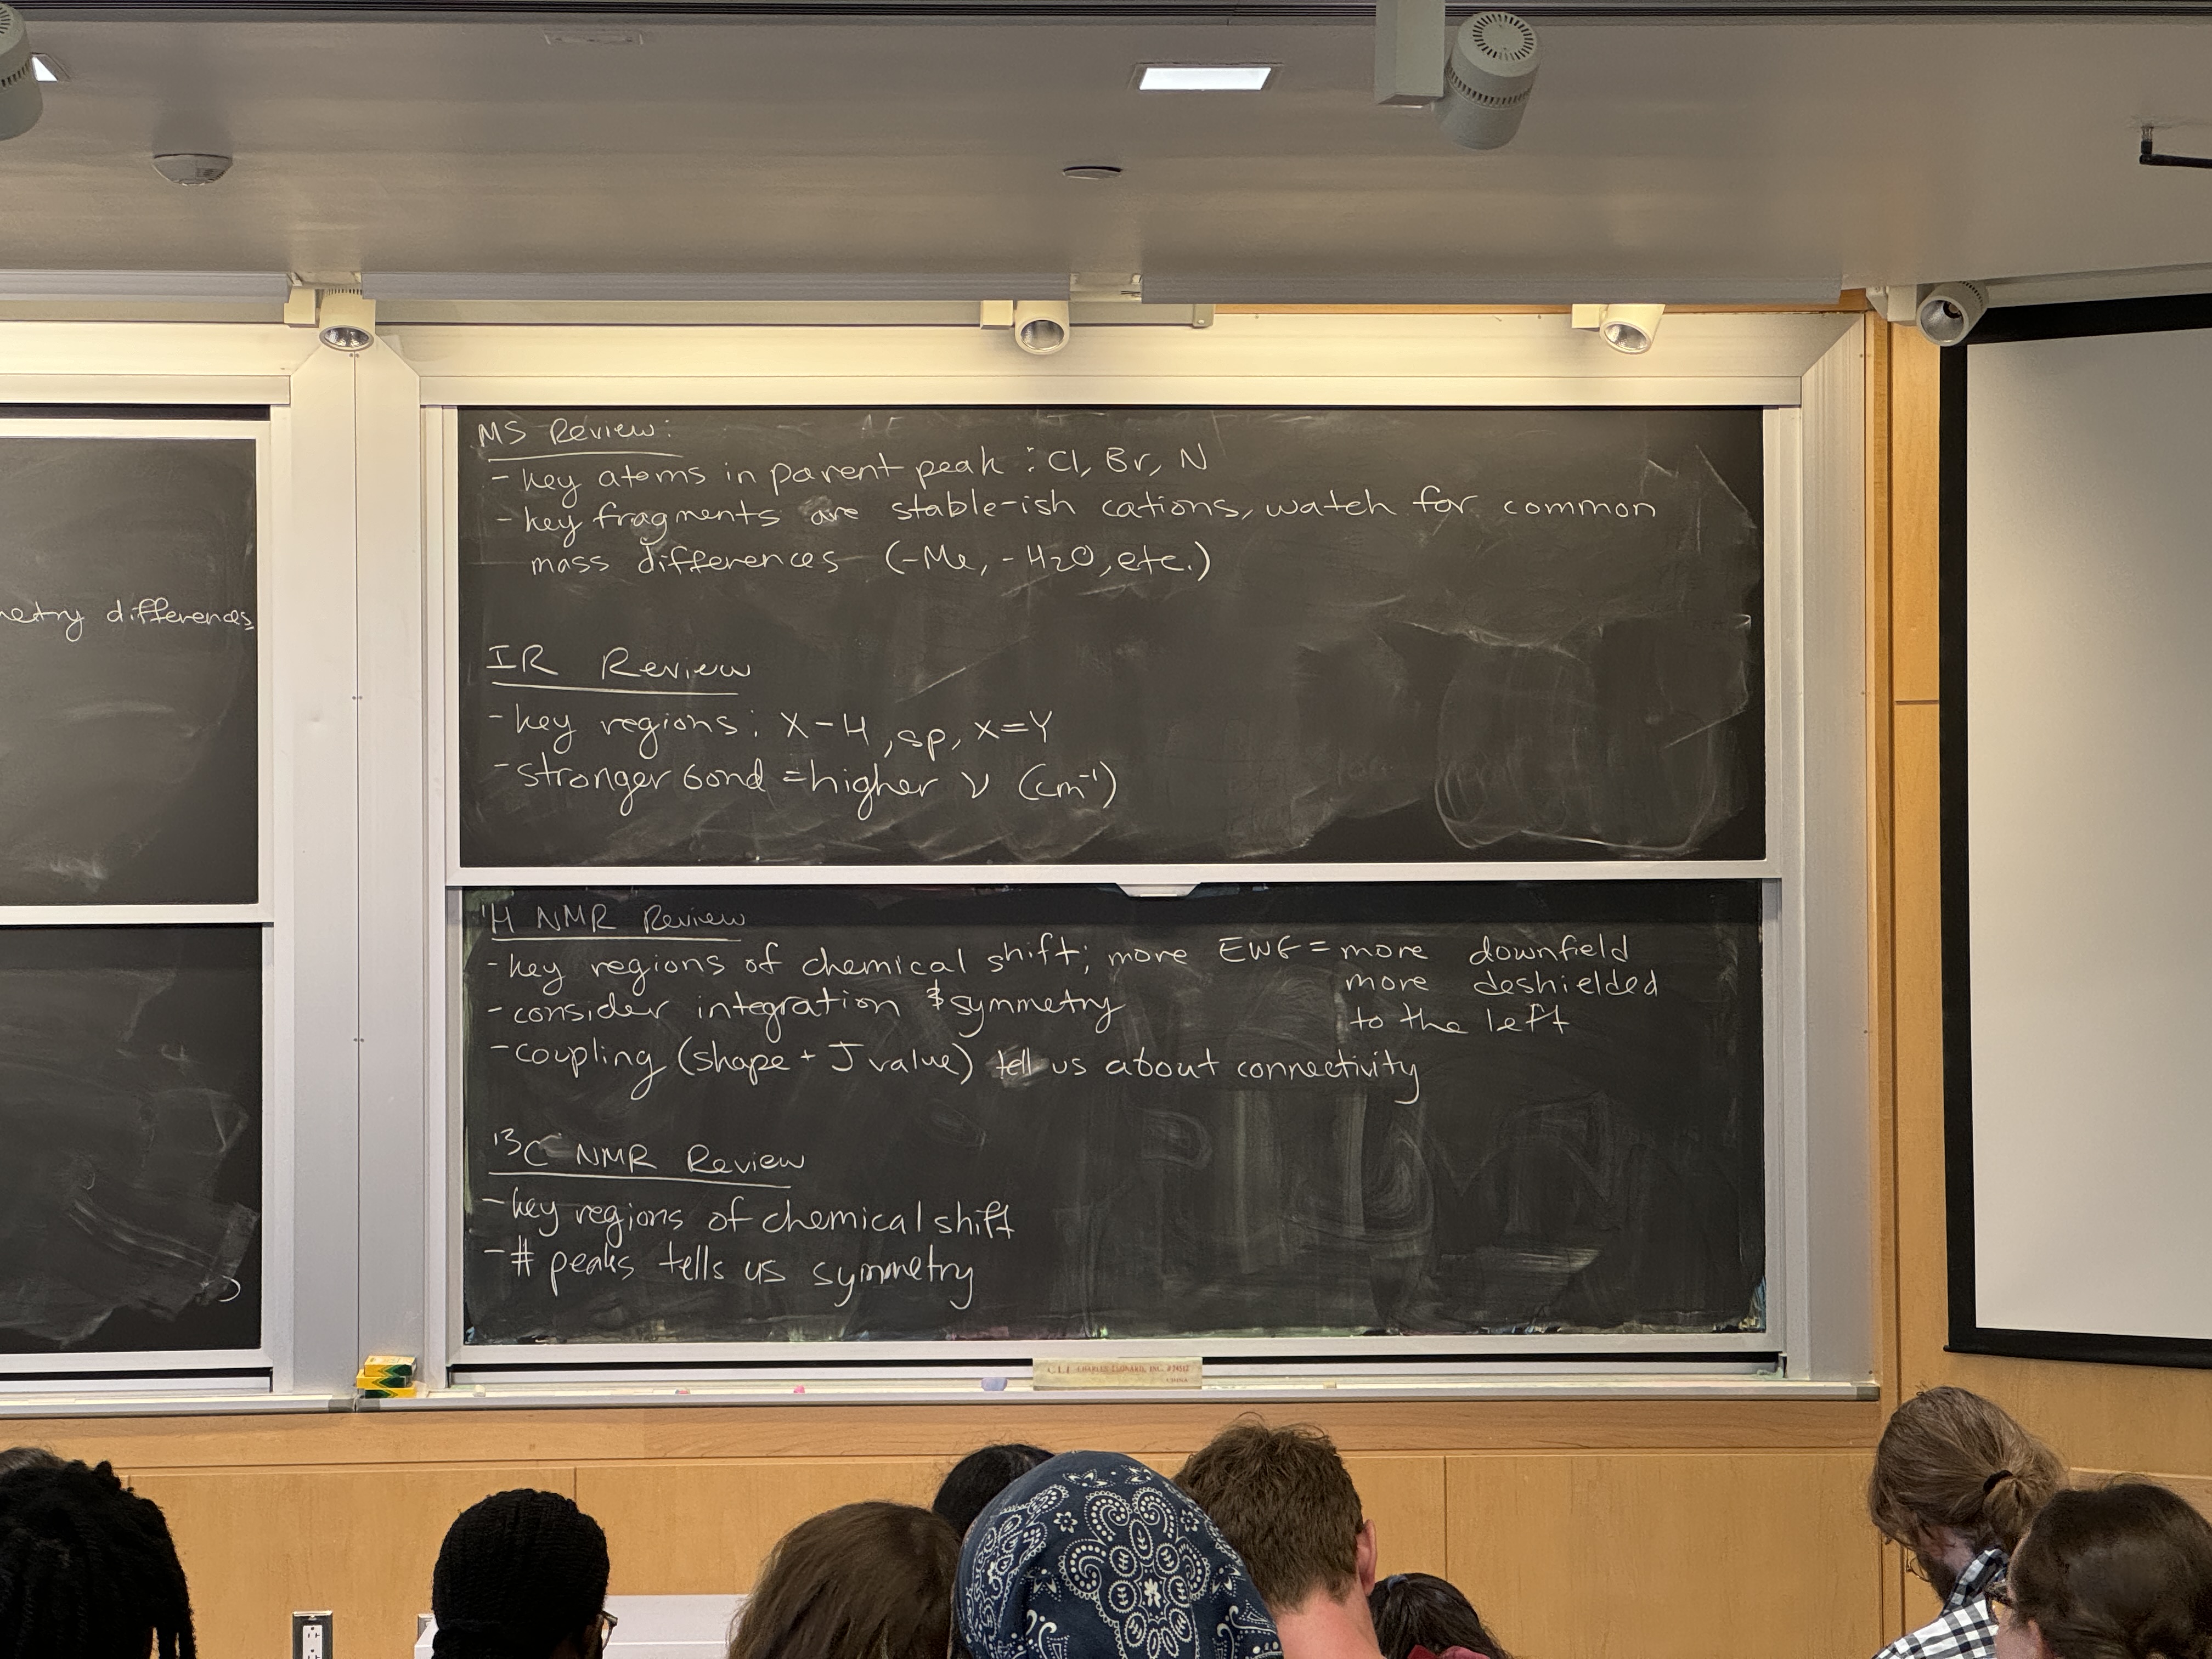 netry differences
MS Review:
- key atoms in parent peak: Cl, Br, N
- key fragments are stable-ish cations, watch for common
mass differences (-Me, -H2O, etc.)
IR Review
- key regions: X-H, sp, X=Y
- stronger bond = higher ν (cm⁻¹)
¹H NMR Review
- key regions of chemical shift; more EWG = more downfield
more deshielded
- consider integration & symmetry
to the left
- coupling (shape + J value) tell us about connectivity
¹³C NMR Review
- key regions of chemical shift
- # peaks tells us symmetry
CHARLES LEONARD, INC.